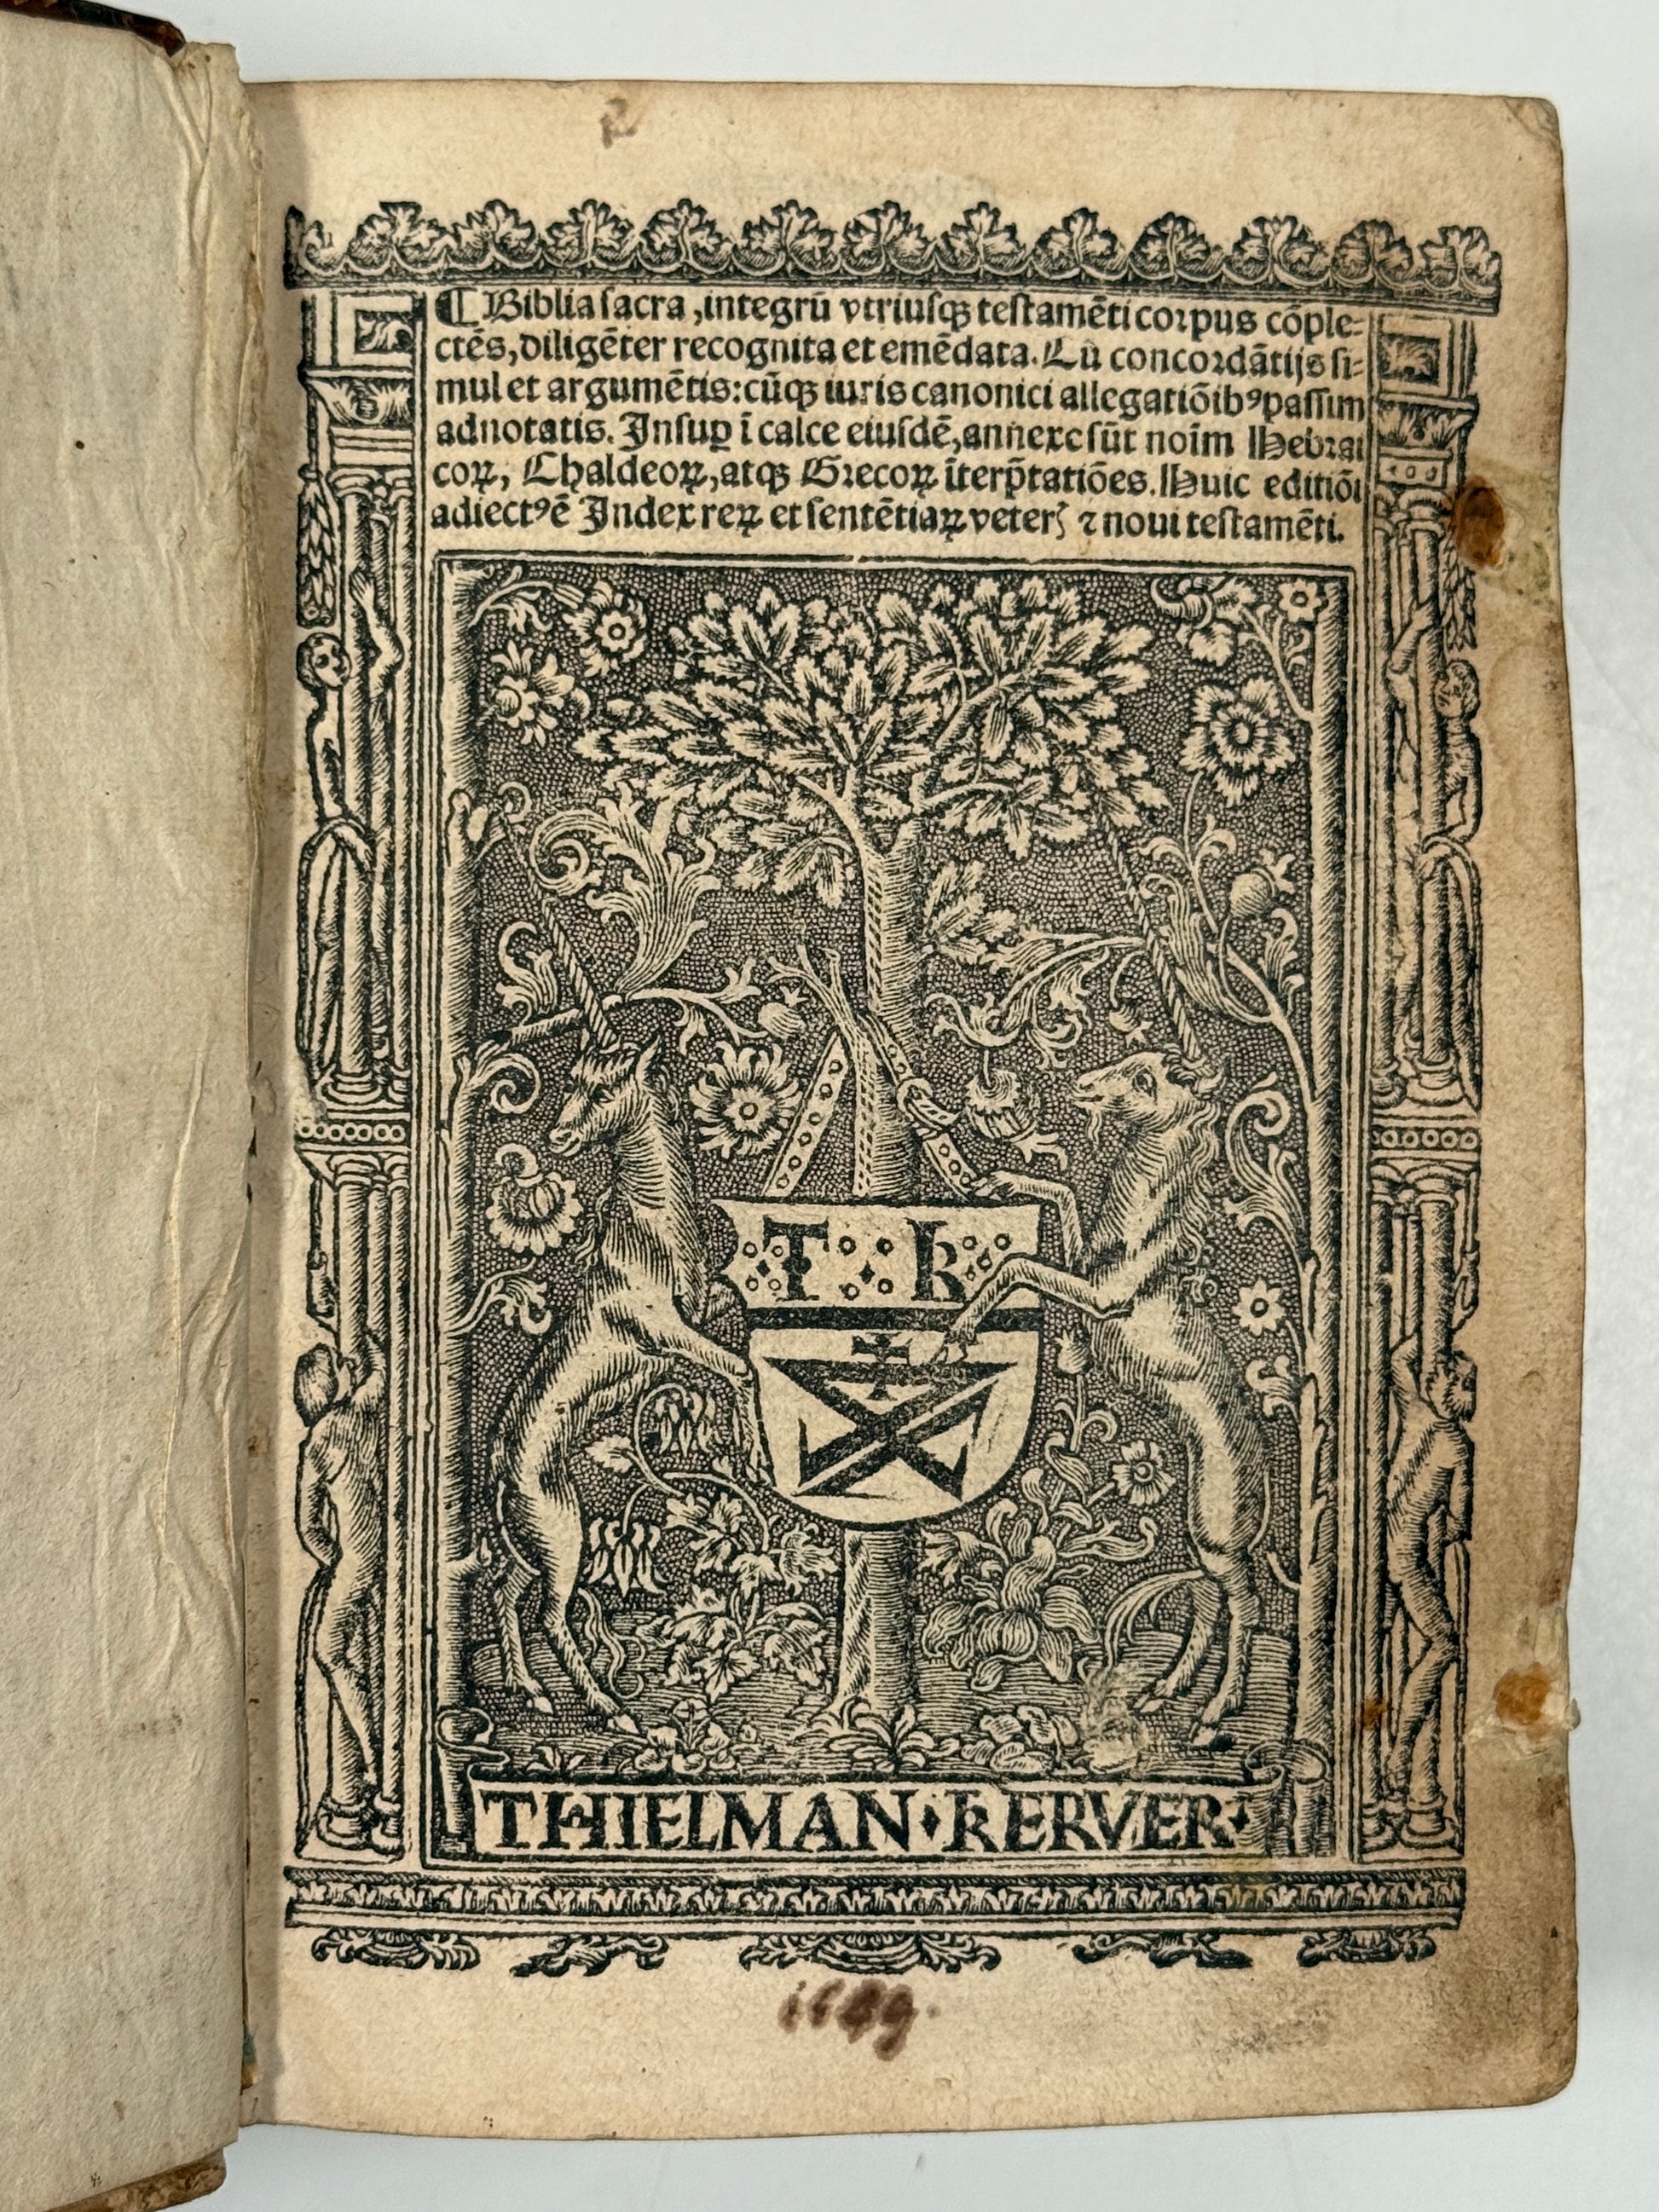 ¶ Biblia sacra, integrū vtriusqꝫ testamēti corpus cōple⸗
ctēs, diligēter recognita et emēdata. Cū concordātijs si⸗
mul et argumētis: cūqꝫ iuris canonici allegatiōibꝰ passim
adnotatis. Insuꝑ ī calce eiusdē, annexe sūt noīm Hebrai
coꝝ, Chaldeoꝝ, atqꝫ Grecoꝝ īterp̄tatiōes. Huic editiōi
adiectꝰ ē Index reꝝ et sentētiaꝝ veterꝭ ⁊ noui testamēti.
T K
THIELMAN · KERVER ·